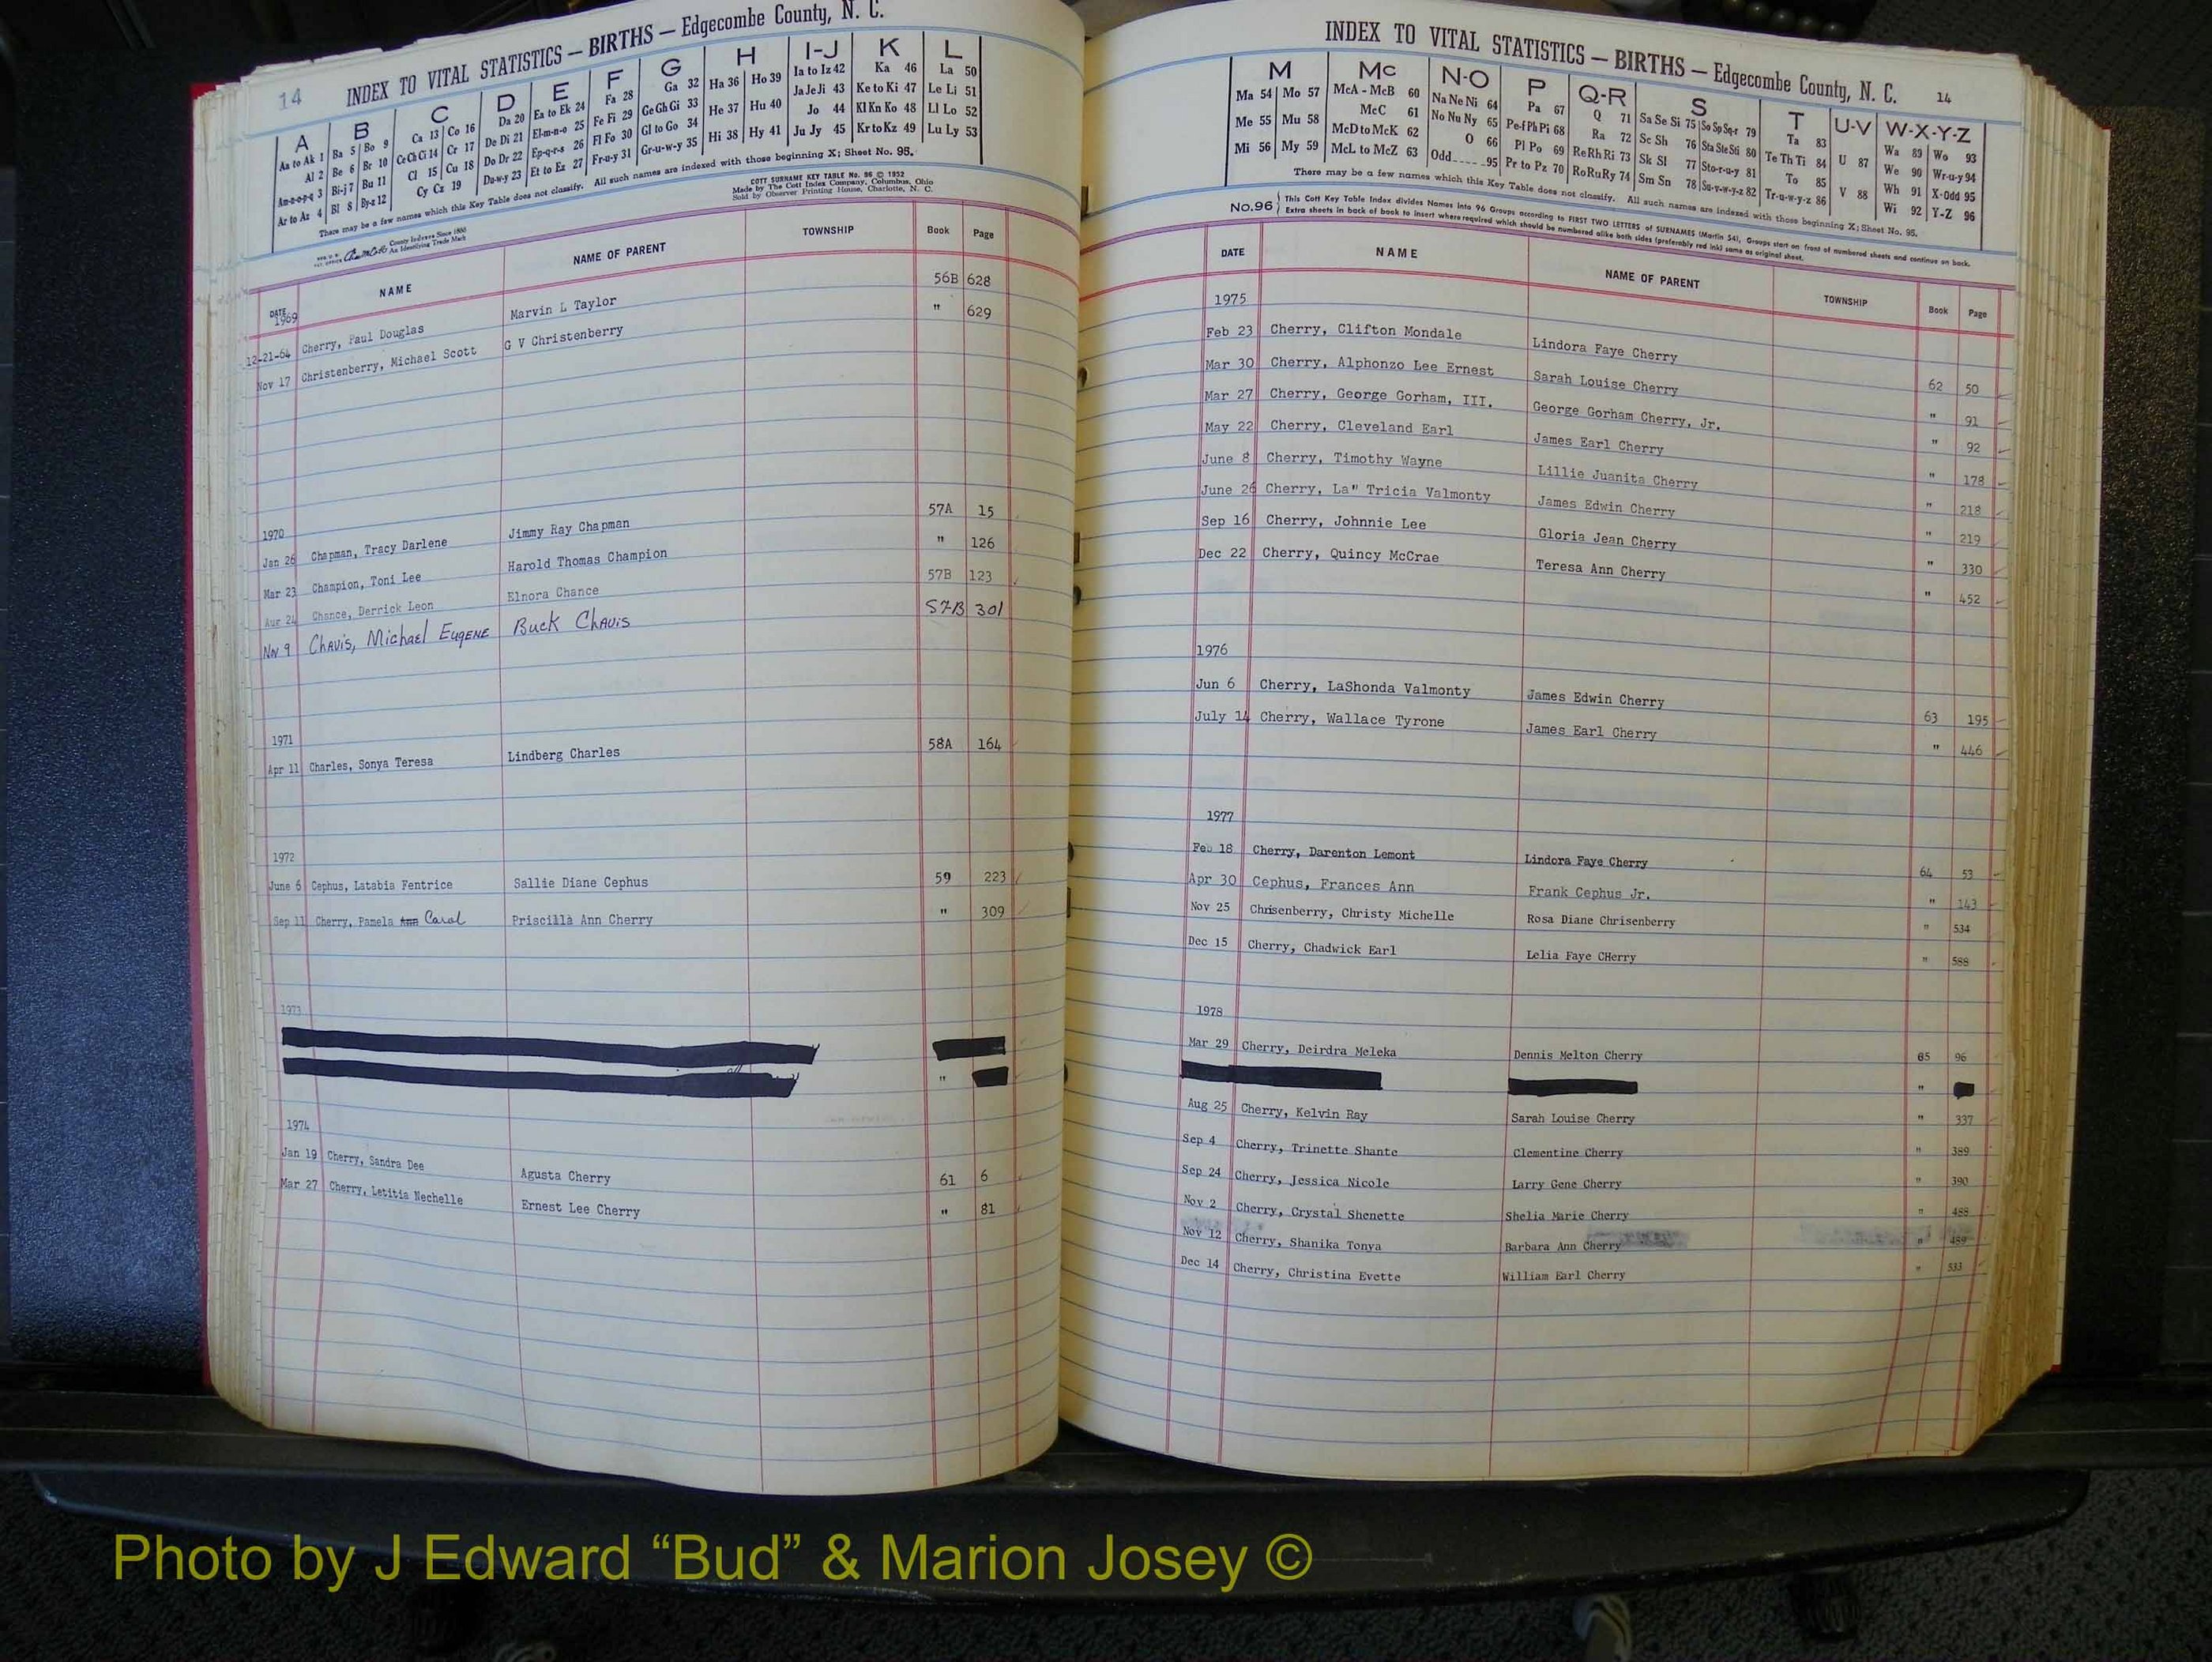 14 INDEX TO VITAL STATISTICS — BIRTHS — Edgecombe County, N. C.
A B C D E F G H I-J K L
Aa to Ak 1 Ba 5 Bo 9 Ca 13 Co 16 Da 20 Ea to Ek 24 Fa 28 Ga 32 Ha 36 Ho 39 Ia to Iz 42 Ka 46 La 50
Al 2 Be 6 Br 10 Ce Ch Ci 14 Cr 17 De Di 21 El-m-n-o 25 Fe Fi 29 Ge Gh Gi 33 He 37 Hu 40 Ja Je Ji 43 Ke to Ki 47 Le Li 51
Am-n-o-p-q 3 Bi-j 7 Bu 11 Cl 15 Cu 18 Do Dr 22 Ep-q-r-s 26 Fl Fo 30 Gl to Go 34 Hi 38 Hy 41 Jo 44 Kl Kn Ko 48 Ll Lo 52
Ar to Az 4 Bl 8 By-z 12 Cy Cz 19 Du-w-y 23 Et to Ez 27 Fr-u-y 31 Gr-u-w-y 35 Ju Jy 45 Kr to Kz 49 Lu Ly 53
There may be a few names which this Key Table does not classify. All such names are indexed with those beginning X; Sheet No. 95.
COTT SURNAME KEY TABLE No. 96 © 1952
Made by The Cott Index Company, Columbus, Ohio
Sold by Observer Printing House, Charlotte, N. C.
County Indexes Since 1888
An Identifying Trade Mark
DATE NAME NAME OF PARENT TOWNSHIP Book Page
1969
12-21-64 Cherry, Paul Douglas Marvin L Taylor 56B 628
Nov 17 Christenberry, Michael Scott G V Christenberry " 629
1970
Jan 26 Chapman, Tracy Darlene Jimmy Ray Chapman 57A 15
Mar 23 Champion, Toni Lee Harold Thomas Champion " 126
Aug 24 Chance, Derrick Leon Elnora Chance 57B 123
Nov 9 Chavis, Michael Eugene Buck Chavis 57B 301
1971
Apr 11 Charles, Sonya Teresa Lindberg Charles 58A 164
1972
June 6 Cephus, Latabia Fentrice Sallie Diane Cephus 59 223
Sep 11 Cherry, Pamela Ann Carol Priscilla Ann Cherry " 309
1973
"
1974
Jan 19 Cherry, Sandra Dee Agusta Cherry 61 6
Mar 27 Cherry, Letitia Nechelle Ernest Lee Cherry " 81
INDEX TO VITAL STATISTICS — BIRTHS — Edgecombe County, N. C. 14
M Mc N-O P Q-R S T U-V W-X-Y-Z
Ma 54 Mo 57 McA - McB 60 Na Ne Ni 64 Pa 67 Q 71 Sa Se Si 75 So Sp Sq-r 79 Ta 83 U 87 Wa 89 Wo 93
Me 55 Mu 58 McC 61 No Nu Ny 65 Pe-f Ph Pi 68 Ra 72 Sc Sh 76 Sta Ste Sti 80 Te Th Ti 84 V 88 We 90 Wr-u-y 94
Mi 56 My 59 McD to McK 62 O 66 Pl Po 69 Re Rh Ri 73 Sk Sl 77 Sto-r-u-y 81 To 85 Wh 91 X-Odd 95
McL to McZ 63 Odd 95 Pr to Pz 70 Ro Ru Ry 74 Sm Sn 78 Su-v-w-y-z 82 Tr-u-w-y-z 86 Wi 92 Y-Z 96
There may be a few names which this Key Table does not classify. All such names are indexed with those beginning X; Sheet No. 95.
No.96 This Cott Key Table Index divides Names into 96 Groups according to FIRST TWO LETTERS of SURNAMES (Martin 54). Groups start on front of numbered sheets and continue on back.
Extra sheets in back of book to insert where required which should be numbered alike both sides (preferably red ink) same as original sheet.
DATE NAME NAME OF PARENT TOWNSHIP Book Page
1975
Feb 23 Cherry, Clifton Mondale Lindora Faye Cherry 62 50
Mar 30 Cherry, Alphonzo Lee Ernest Sarah Louise Cherry " 91
Mar 27 Cherry, George Gorham, III. George Gorham Cherry, Jr. " 92
May 22 Cherry, Cleveland Earl James Earl Cherry " 178
June 8 Cherry, Timothy Wayne Lillie Juanita Cherry " 218
June 26 Cherry, La" Tricia Valmonty James Edwin Cherry " 219
Sep 16 Cherry, Johnnie Lee Gloria Jean Cherry " 330
Dec 22 Cherry, Quincy McCrae Teresa Ann Cherry " 452
1976
Jun 6 Cherry, LaShonda Valmonty James Edwin Cherry 63 195
July 14 Cherry, Wallace Tyrone James Earl Cherry " 446
1977
Feb 18 Cherry, Darenton Lemont Lindora Faye Cherry 64 53
Apr 30 Cephus, Frances Ann Frank Cephus Jr. " 143
Nov 25 Chrisenberry, Christy Michelle Rosa Diane Chrisenberry " 534
Dec 15 Cherry, Chadwick Earl Lelia Faye CHerry " 588
1978
Mar 29 Cherry, Deirdra Meleka Dennis Melton Cherry 65 96
"
Aug 25 Cherry, Kelvin Ray Sarah Louise Cherry " 337
Sep 4 Cherry, Trinette Shante Clementine Cherry " 389
Sep 24 Cherry, Jessica Nicole Larry Gene Cherry " 390
Nov 2 Cherry, Crystal Shenette Shelia Marie Cherry " 488
Nov 12 Cherry, Shanika Tonya Barbara Ann Cherry " 489
Dec 14 Cherry, Christina Evette William Earl Cherry " 533
Photo by J Edward “Bud” & Marion Josey ©